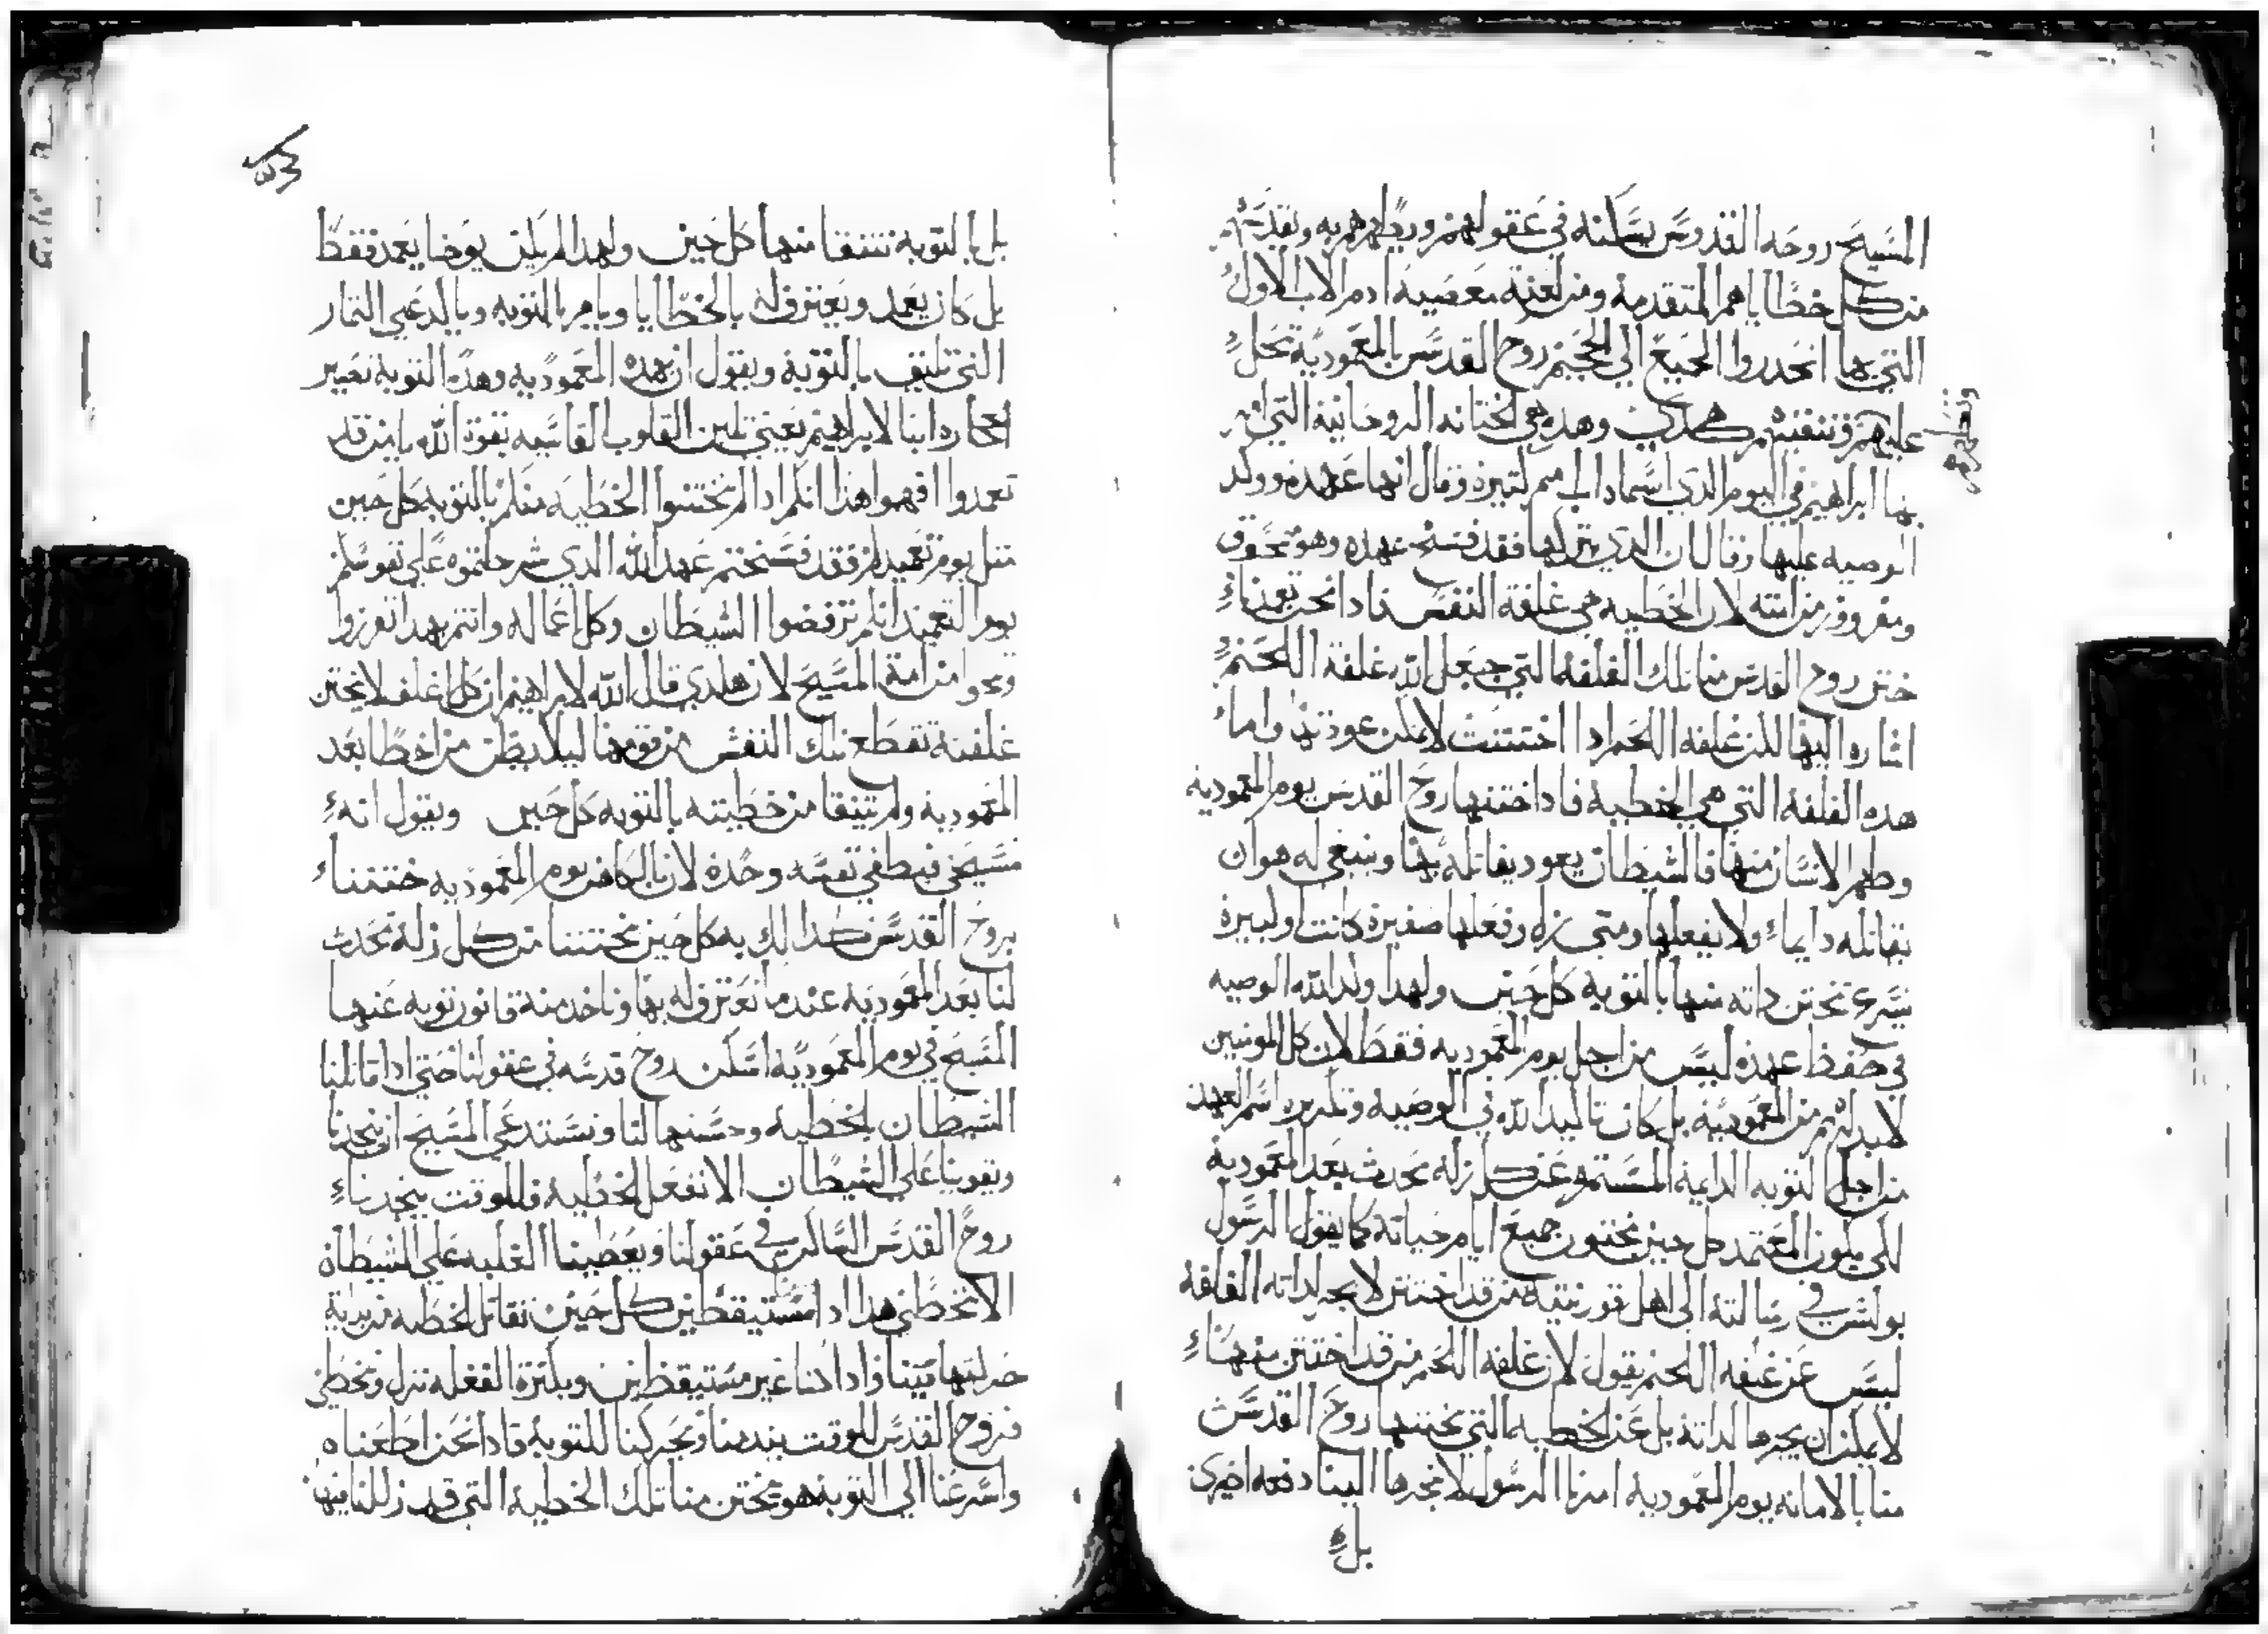 المسيح روحه القدوس يسكنه في عقولهم ويطهرهم به وتقديسهم
من كل خطاياهم المتقدمة ومن لعنة معصية ادم الاب الاول
التي بها انحدروا الجميع الي الجحيم روح القدس بالمعمودية تحل
عليهم وتنقيهم كهدى وهده هي الختانه الروحانية التي امر
وتطهرهم
بها ابراهيم في اليوم الدي اسماه اب امم كتيرة وقال انها عهده ووكد
الوصيه عليها وقال ان الدي يتركها فقد فسخ عهده وهو محقوق
ومفروز من امته لان الخطيه هي غلفة النفس فادا نحن تعمدنا
ختن روح القدس منا تلك الغلفه التي جعل الله غلفة اللحم
اشاره اليها لكن غلفه اللحم ادا اختتنت لا يمكن عودتها واما
هده الغلفه التي هي الخطيه فادا ختنها روح القدس يوم المعمودية
وطهر الانسان منها فالشيطان يعود يقاتله بها وينبغي له هو ان
يقاتله دايما ولا يفعلها ومتي زل وفعلها صغيرة كانت او كبيرة
يسرع يختن داته منها بالتوبة كل حين ولهدا وكد الله الوصيه
في حفظ عهده ليس من اجل يوم المعموديه فقط لان كل المومنين
لابد لهم من المعمودية بل كان تاكيد الله في الوصيه وتكريره اسم العهد
من اجل التوبه الدايمة المستمره عن كل زله تحدث بعد المعمودية
لكي يكون المعتمد كل حين مختون جميع ايام حياته كما يقول الرسول
بولس في رسالته الي اهل قورنتيه من قد اختتن لا يجر لداته الغلفة
ليس عن غلفه اللحم يقول لان غلفه اللحم من قد اختتن منها
لا يمكن ان يجرها لداته بل عن الخطيه التي يختنها روح القدس
منا بالامانه يوم المعمودية امرنا الرسول لا نجرها الينا دفعه اخرى
بل
بل بالتوبه نتنقا منها كل حين ولهدا لم يكن يوحنا يعمد فقط
بل كان يعمد ويعترف له بالخطايا ويامر بالتوبه وبالدعي التمار
التي تليق بالتوبة ويقول ان هده المعمودية وهده التوبة تصير
الحجاره ابنا لابراهيم يعني تلين القلوب القاسيه بقوة الله يا من قد
تعمدوا افهموا هدا انكم ادا لم تختنوا الخطيه منكم بالتوبه كل حين
متل يوم تعميدكم فقد فسختم عهد الله الدي شرطتموه علي نفوسكم
يوم التعميد انكم ترفضوا الشيطان وكل اعماله وانتم بهدا تفرزوا
من امة المسيح لان هكدي قال الله لابراهيم ان كل اغلف لا يختن
غلفته تقطع تلك النفس من قومها ليلا يظن من اخطا بعد
المعمودية ولم يتنقا من خطيته بالتوبه كل حين ويقول انه
مسيحي نفسه وحده لان الكاهن يوم المعمودية ختننا
بروح القدس كدالك به كل حين نختتنا من كل زله تحدث
لنا بعد المعمودية عندما نعترف له بها وناخد منه قانون توبه عنها
المسيح في يوم المعمودية اسكن روح قدسه في عقولنا حتي ادا قاتلنا
الشيطان بالخطيه وحسنها لنا ونستدعي المسيح ان ينجدنا
ويقوينا علي الشيطان الا نفعل الخطية فللوقت ينجدنا
روح القدس الساكن في عقولنا ويعطينا الغلبه علي الشيطان
الا نخطي هدا ادا مستيقظين كل حين نقاتل الخطيه من بداية
حركتها فينا وادا كنا غير مستيقظين وبكترة الغفله نزل ونخطي
فروح القدس للوقت يندمنا ويحركنا للتوبة فادا نحن اطعناه
واسرعنا الي التوبة هو يختن منا تلك الخطية التي قد زللنا فيها